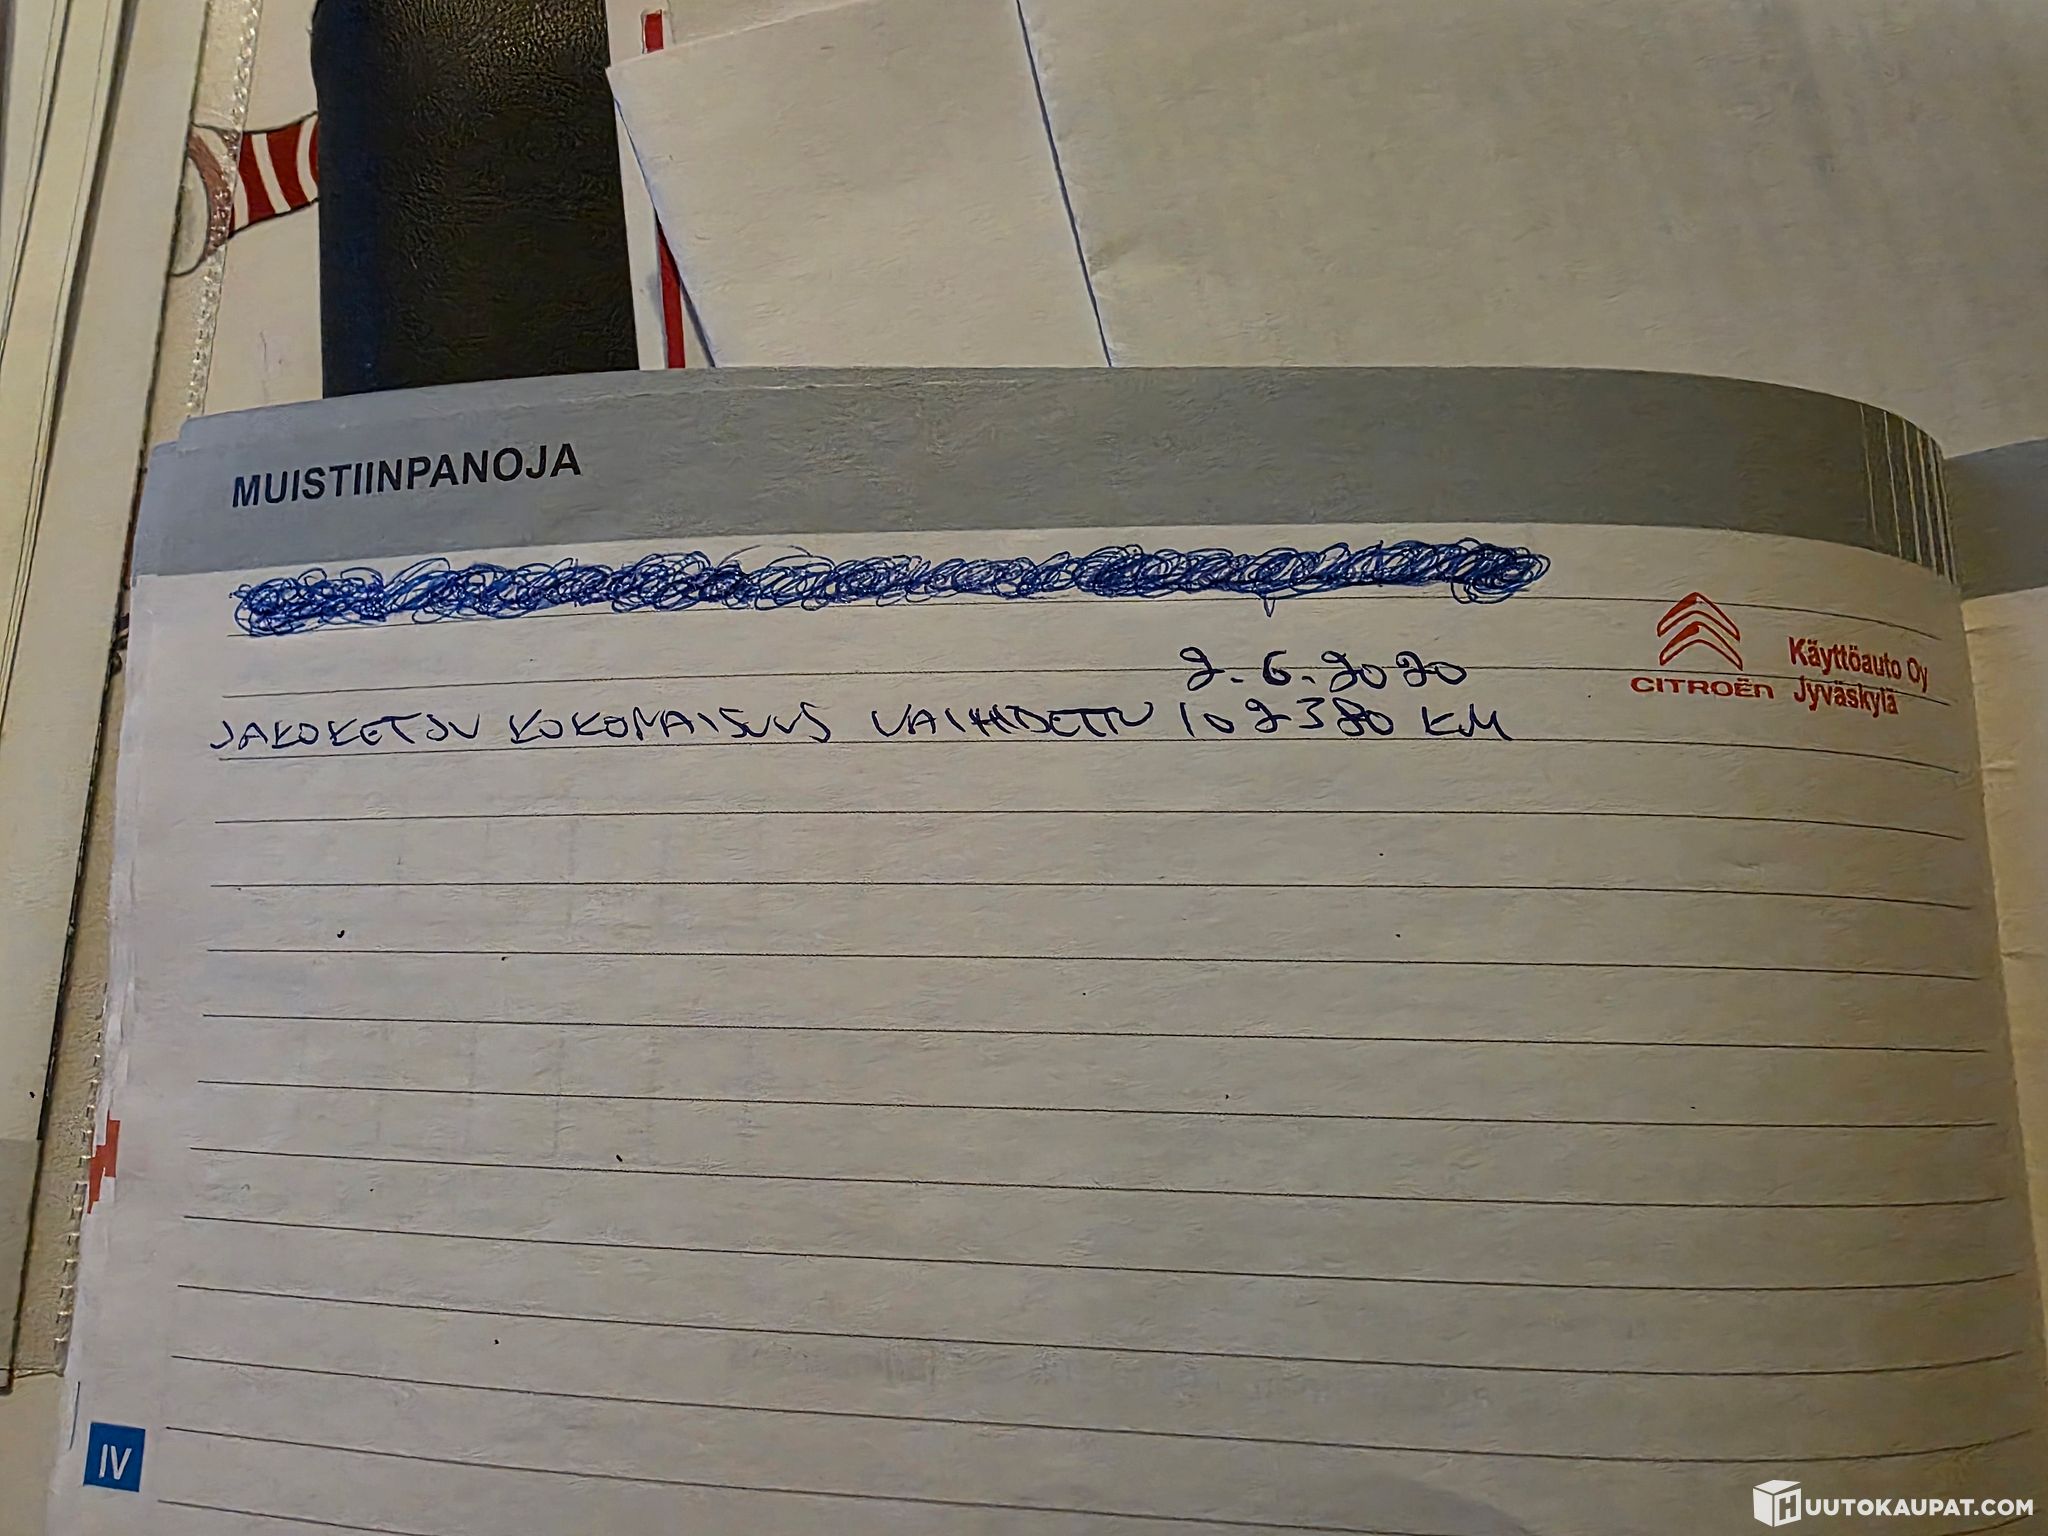 MUISTIINPANOJA
2.6.2020
JAKOKETJU KOKONAISUUS VAIHDETTU 102380 KM
CITROËN
Käyttöauto Oy
Jyväskylä
IV
HUUTOKAUPAT.COM